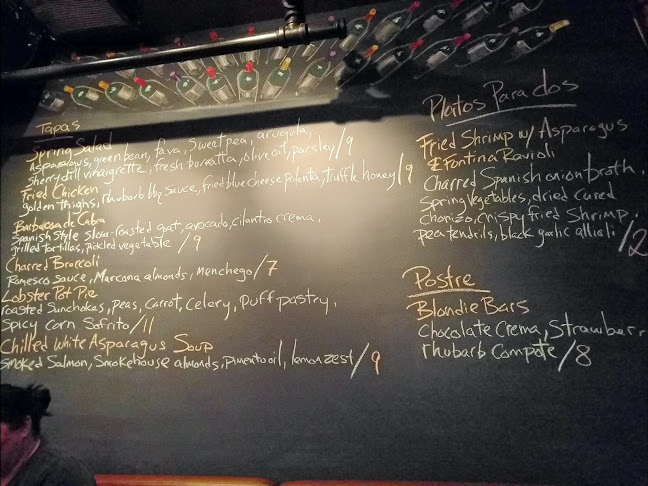 Tapas
Spring Salad
Asparagus, green bean, fava, sweet pea, arugula,
Sherry dill vinaigrette, fresh burratta, olive oil, parsley/9
Fried Chicken
golden thighs, rhubarb bbq sauce, fried blue cheese polenta, truffle honey/9
Barbacoa de Cabra
Spanish Style slow-roasted goat, avocado, cilantro crema,
grilled tortillas, pickled vegetable /9
Charred Broccoli
Romesco sauce, Marcona almonds, Menchego/7
Lobster Pot Pie
roasted Sunchokes, peas, carrot, celery, puff pastry,
Spicy corn Sofrito/11
Chilled White Asparagus Soup
Smoked Salmon, Smokehouse almonds, pimento oil, lemon zest/9
Platos Para dos
Fried Shrimp w/ Asparagus
& Fontina Ravioli
Charred Spanish onion broth,
Spring Vegetables, dried cured
Chorizo, crispy fried Shrimp,
pea tendrils, black garlic allioli/12
Postre
Blondie Bars
Chocolate Crema, Strawberr
rhubarb Compote/8